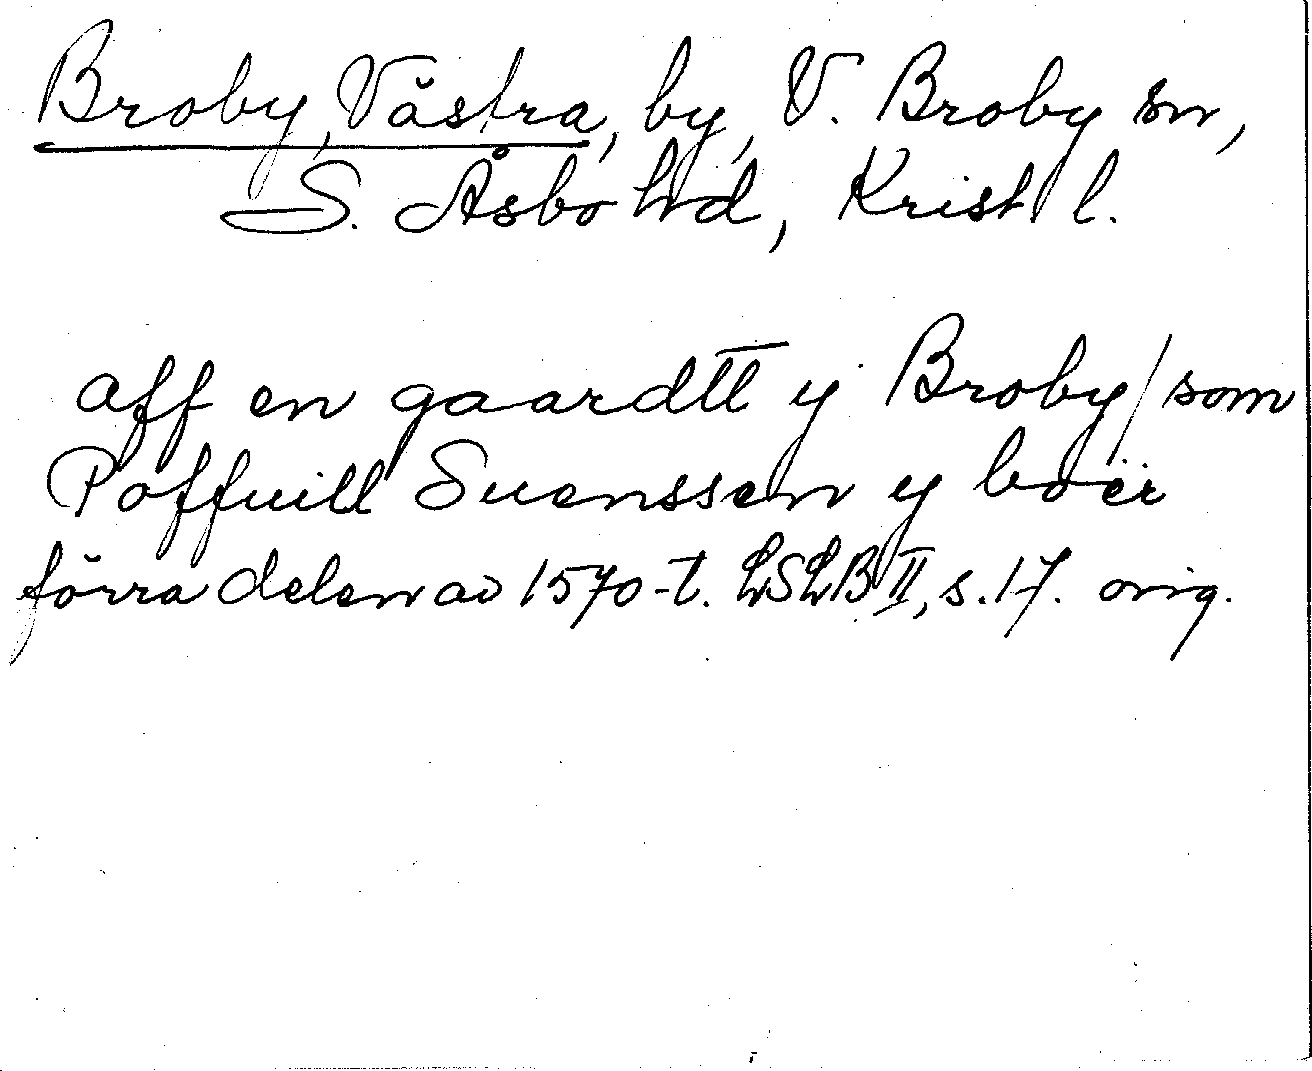 Broby, Västra, by, V. Broby sn,
S. Åsbo hd, Krist l.
aff en gaardtt y Broby/som
Poffuill Suenssen y boër
förra delen av 1570-t. LSLB II, s. 17. orig.